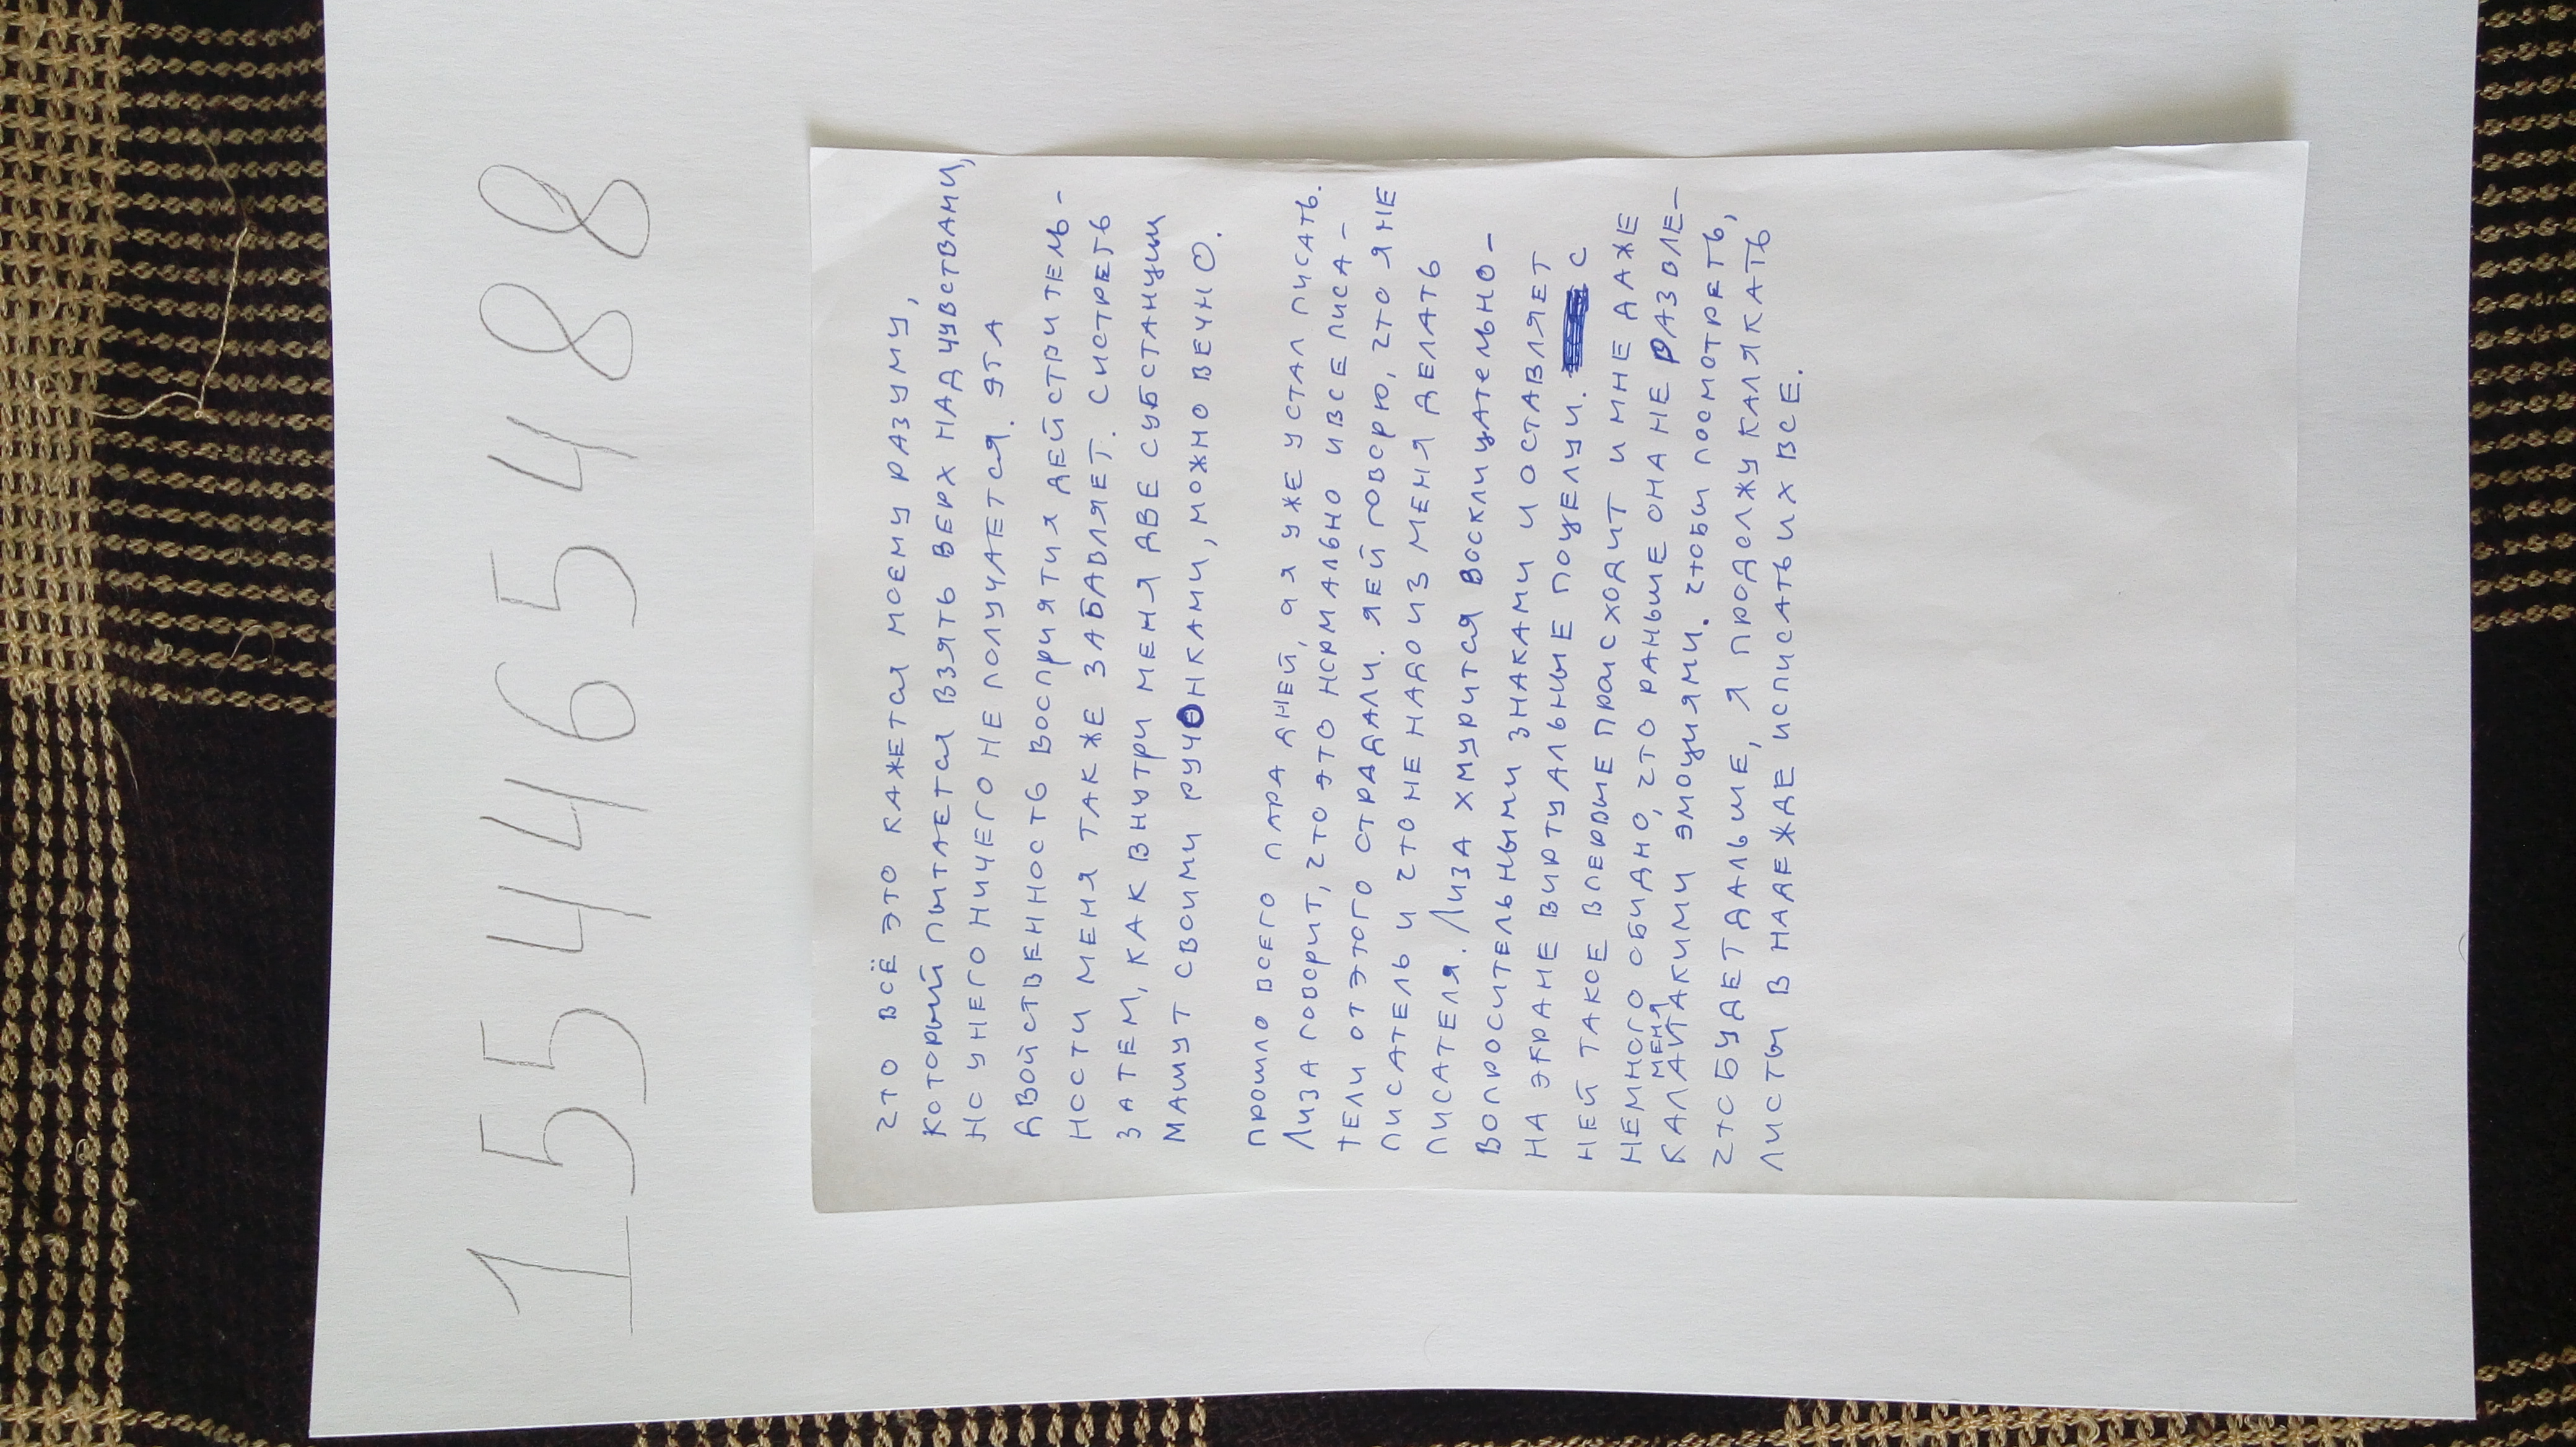 155465488
ЧТО ВСЁ ЭТО КАЖЕТСЯ МОЕМУ РАЗУМУ,
КОТОРЫЙ ПЫТАЕТСЯ ВЗЯТЬ ВЕРХ НАД ЧУВСТВАМИ,
НО У НЕГО НИЧЕГО НЕ ПОЛУЧАЕТСЯ. ЭТА
ДВОЙСТВЕННОСТЬ ВОСПРИЯТИЯ ДЕЙСТВИТЕЛЬ-
НОСТИ МЕНЯ ТАКЖЕ ЗАБАВЛЯЕТ. СМОТРЕТЬ
ЗА ТЕМ, КАК ВНУТРИ МЕНЯ ДВЕ СУБСТАНЦИИ
МАШУТ СВОИМИ РУЧОНКАМИ, МОЖНО ВЕЧНО.
ПРОШЛО ВСЕГО ПАРА ДНЕЙ, А Я УЖЕ УСТАЛ ПИСАТЬ.
ЛИЗА ГОВОРИТ, ЧТО ЭТО НОРМАЛЬНО И ВСЕ ПИСА-
ТЕЛИ ОТ ЭТОГО СТРАДАЛИ. Я ЕЙ ГОВОРЮ, ЧТО Я НЕ
ПИСАТЕЛЬ И ЧТО НЕ НАДО ИЗ МЕНЯ ДЕЛАТЬ
ПИСАТЕЛЯ. ЛИЗА ХМУРИТСЯ ВОСКЛИЦАТЕЛЬНО-
ВОПРОСИТЕЛЬНЫМИ ЗНАКАМИ И ОСТАВЛЯЕТ
НА ЭКРАНЕ ВИРТУАЛЬНЫЕ ПОЦЕЛУИ. С
НЕЙ ТАКОЕ ВПЕРВЫЕ ПРОИСХОДИТ И МНЕ ДАЖЕ
НЕМНОГО ОБИДНО, ЧТО РАНЬШЕ ОНА НЕ РАЗВЛЕ-
КАЛА МЕНЯ ТАКИМИ ЭМОЦИЯМИ. ЧТОБЫ ПОСМОТРЕТЬ,
ЧТО БУДЕТ ДАЛЬШЕ, Я ПРОДОЛЖУ КАЛЯКАТЬ
ЛИСТЫ В НАДЕЖДЕ ИСПИСАТЬ ИХ ВСЕ.